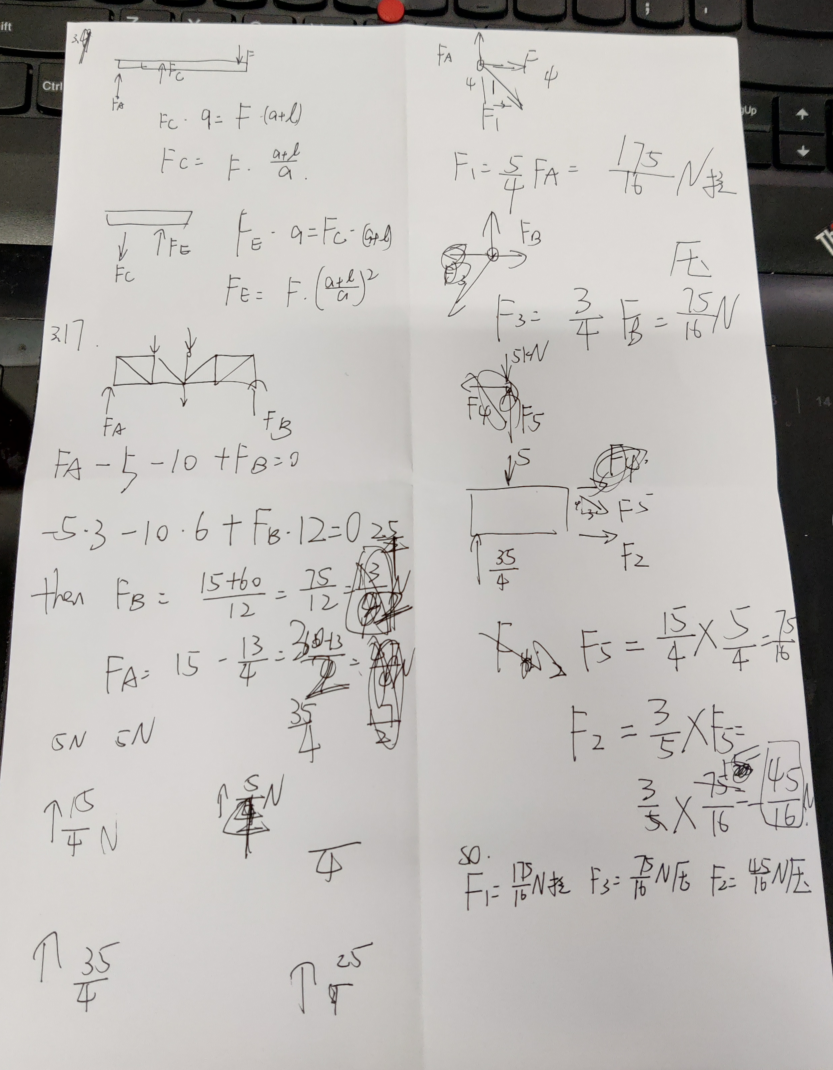 3.9
F
FC
FA
FC · a = F · (a+l)
FC = F · \frac{a+l}{a}.
FC
FE
FE · a = FC · (a+l)
FE = F · (\frac{a+l}{a})^2
3.17.
FA
FB
FA - 5 - 10 + FB = 0
-5·3 - 10·6 + FB·12 = 0
then FB = \frac{15+60}{12} = \frac{75}{12} = \frac{25}{4}
FA = 15 - \frac{13}{4} =
\frac{35}{4}
5N 5N
↑\frac{15}{4} N ↑ N
\frac{}{4}
↑\frac{35}{4} ↑\frac{25}{4}
FA F
4 4
F1
F1 = \frac{5}{4} FA = \frac{175}{16} N 拉
FB
压
F3 = \frac{3}{4} FB = \frac{75}{16} N
5kN
F4 F5
5
F5
F2
\frac{35}{4}
F5 = \frac{15}{4} × \frac{5}{4} = \frac{75}{16}
F2 = \frac{3}{5} × F5 =
\frac{3}{5} × \frac{75}{16} = \frac{45}{16} N
so.
F1 = \frac{175}{16} N 拉 F3 = \frac{75}{16} N 压 F2 = \frac{45}{16} N 压